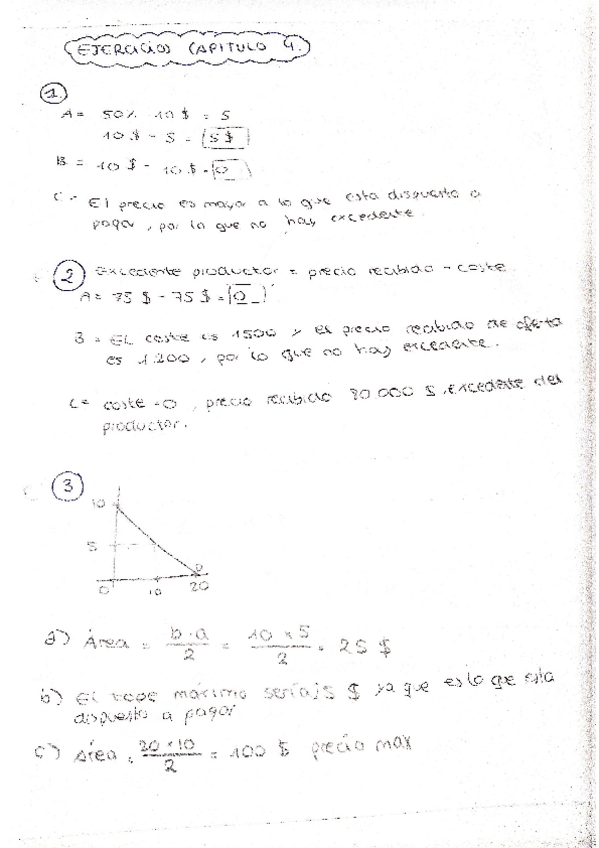 EJERCICIOS CAPITULO 4.
1
A = 50% 10 $ = 5
10 $ - 5 = 5 $
B = 10 $ - 10 $ = 0
C = El precio es mayor a lo que esta dispuesto a
pagar, por lo que no hay excedente.
2 excedente productor = precio recibido - coste
A = 75 $ - 75 $ = 0
B = El coste es 1500 y el precio recibido de oferta
es 1.200, por lo que no hay excedente.
C = coste = 0, precio recibido 80.000 $, excedente del
productor.
3
10
5
0 10 20
D
a) Área = b·a/2 = 10 x 5/2 = 25 $
b) El tope máximo sería 5 $ ya que es lo que esta
dispuesto a pagar
c) Área = 20 x 10/2 = 100 $ precio max